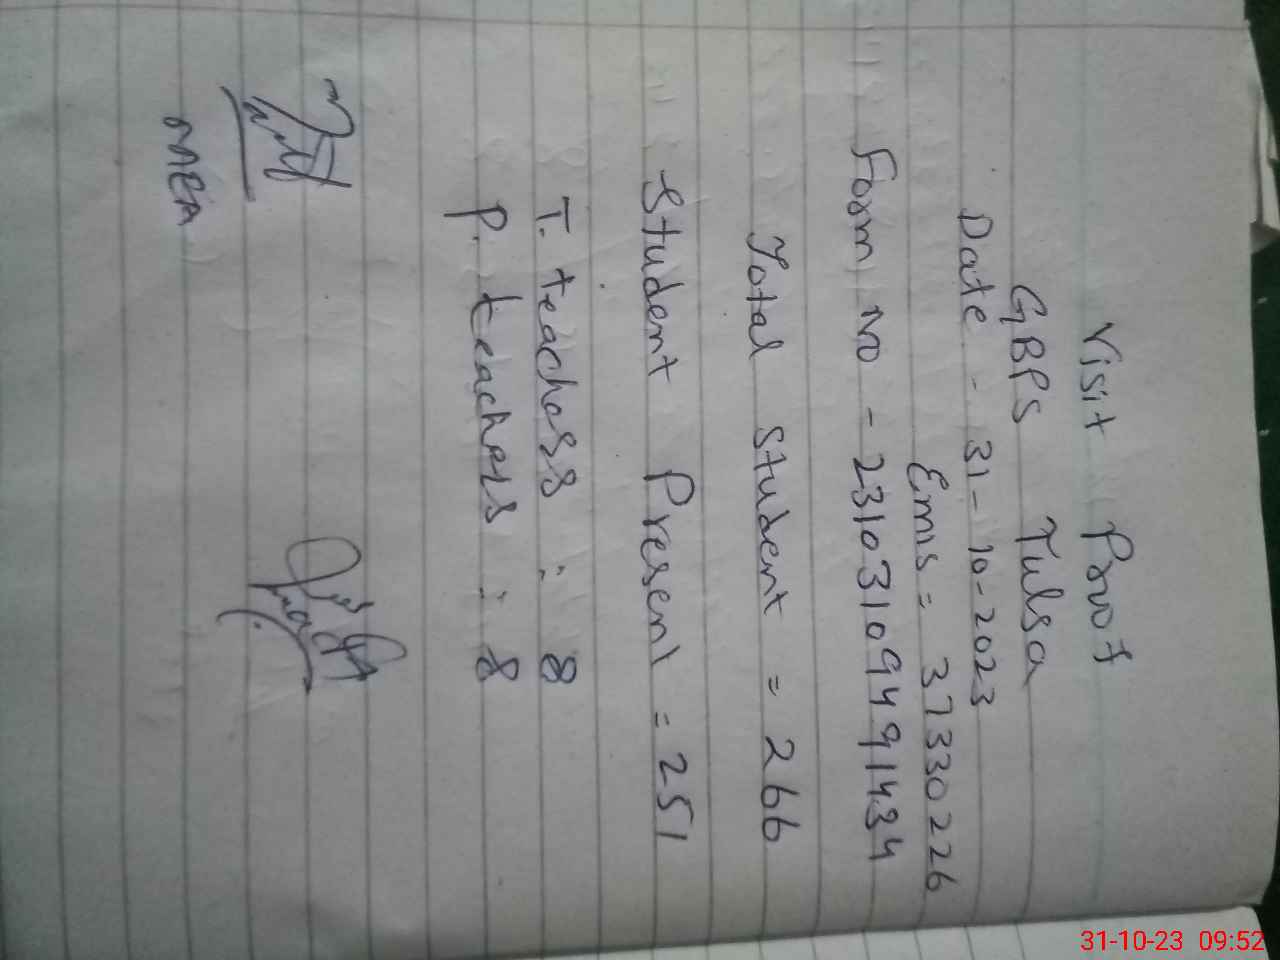 Visit Proof
GBPS Tulsa
Date - 31-10-2023
Emis = 37330226
Form no - 231031094991434
Total student = 266
Student Present = 251
T. teachers : 8
P. teachers : 8
MEA
31-10-23 09:52